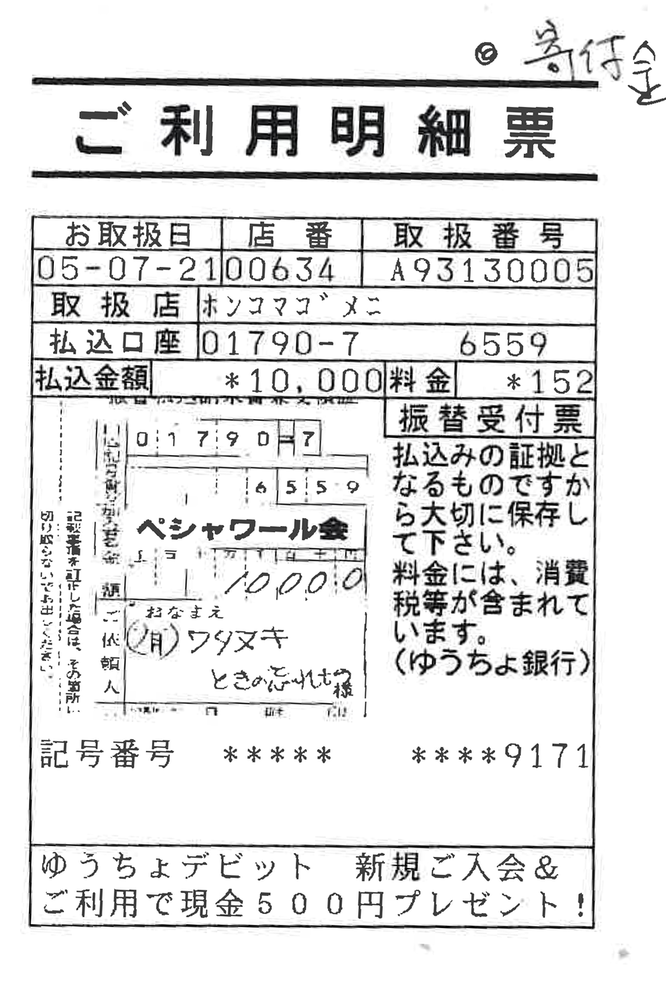 ◎ 寄付金
ご利用明細票
お取扱日 店番 取扱番号
05-07-21 00634 A93130005
取扱店 ホンコマゴメニ
払込口座 01790-7 6559
払込金額 *10,000 料金 *152
01790-7
6559
ペシャワール会
10000
額
おなまえ
ご依頼人
(有)ワタヌキ
ときの忘れもの様
記載事項を訂正した場合は、その箇所に
切り取らないでお出しください。
振替受付票
払込みの証拠と
なるものですか
ら大切に保存し
て下さい。
料金には、消費
税等が含まれて
います。
(ゆうちょ銀行)
記号番号 ***** ****9171
ゆうちょデビット 新規ご入会&
ご利用で現金500円プレゼント!